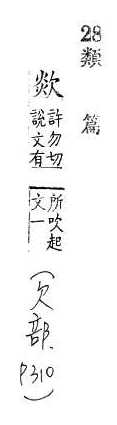 28類篇
欻
許勿切
說文有
所吹起
文一
(欠部.P310)